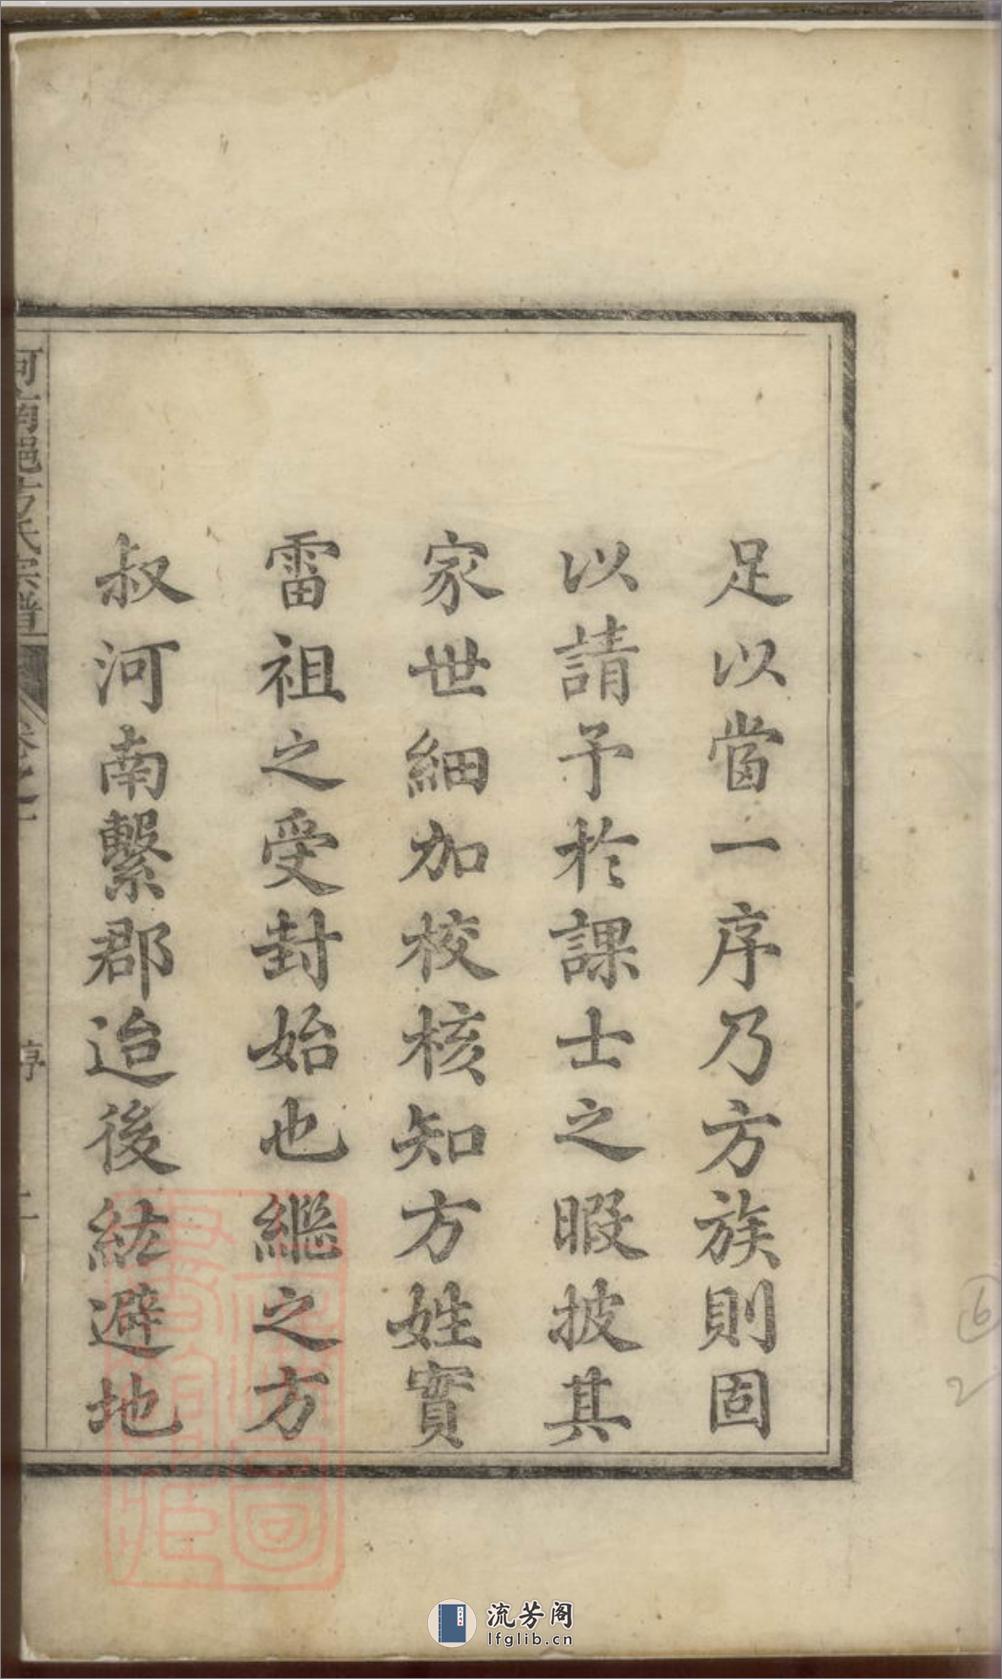 足以當一序乃方族則固
以請予於課士之暇披其
家世細加校核知方姓實
雷祖之受封始也繼之方
叔河南繫郡迨後紘避地
河南𨛦方氏宗譜
卷之一
序
二
6
2
流芳阁
lfglib.cn